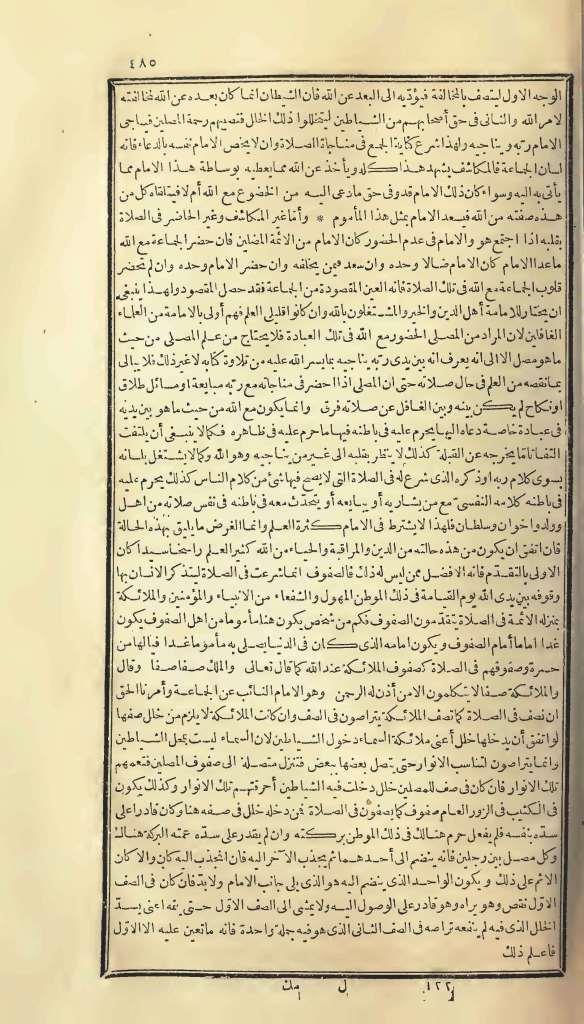 ٤٨٥
الوجه الاول ليتصف بالمخالفة فيؤديه الى البعد عن الله فان الشيطان انما كان بعده عن الله لمخالفته
لامر الله والثانى فى حق أصحابهم من الشياطين ليتخللوا ذلك الخلل فتصيبهم رحمة المصلين فيناجى
الامام ربه ويناجيه ولهذا شرع كناية الجمع فى مناجاة الصلاة وان لا يخص الامام نفسه بالدعاء فانه
لسان الجماعة فالمكاشف يشهد هذا كله ويأخذ عن الله ما يعطيه بوساطة هذا الامام مما
يأتى به اليه وسواء كان ذلك الامام قد وفى حق ما دعى اليه من الخضوع مع الله أم لا فيتلقاه كل من
هذه صفته من الله فيسعد الامام بمثل هذا المأموم * وأما غير المكاشف وغير الحاضر فى الصلاة
بقلبه اذا اجتمع هو والامام فى عدم الحضور كان الامام من الائمة المضلين فان حضر الجماعة مع الله
ما عدا الامام كان الامام ضالا وحده وان سعد فبمن يخلفه وان حضر الامام وحده وان لم تحضر
قلوب الجماعة مع الله فى تلك الصلاة فانه العين المقصودة من الجماعة فقد حصل المقصود ولهذا ينبغى
ان يختار للامامة أهل الدين والخير والمشتغلون بالله وان كانوا قليلى العلم فهم أولى بالامامة من العلماء
الغافلين لان المراد من المصلى الحضور مع الله فى تلك العبادة فلا يحتاج من علم المصلى من حيث
ما هو مصل الا الى انه يعرف انه بين يدى ربه يناجيه بما يسر الله عليه من تلاوة كتابه لا غير ذلك فلا يبالى
بما نقصه من العلم فى حال صلاته حتى ان المصلى اذا احضر فى مناجاته مع ربه مبايعة او مسائل طلاق
او نكاح لم يكن بينه وبين الغافل عن صلاته فرق وانما يكون مع الله من حيث ما هو بين يديه
فى عبادة خاصة دعاه اليها يحرم عليه فى باطنه فيها ما حرم عليه فى ظاهره فكما لا ينبغى أن يلتفت
التفاتا يخرجه عن القبلة كذلك لا ينظر بقلبه الى غير من يناجيه وهو الله وكما لا يشتغل بلسانه
بسوى كلام ربه او ذكره الذى شرع له فى الصلاة التى لا يصح فيها شئ من كلام الناس كذلك يحرم عليه
فى باطنه كلامه النفسى مع من يشاربه أو يبايعه أو يتحدث معه فى باطنه فى نفس صلاته من اهل
وولد واخوان وسلطان فلهذا لا يشترط فى الامام كثرة العلم وانما الغرض ما يليق بهذه الحالة
فان اتفق ان يكون من هذه حالته من الدين والمراقبة والحياء من الله كثير العلم راسخا سيدا كان
الاولى بالتقدم فانه الافضل ممن ليس له ذلك فالصفوف انما شرعت فى الصلاة ليتذكر الانسان بها
وقوفه بين يدى الله يوم القيامة فى ذلك الموطن المهول والشفعاء من الانبياء والمؤمنين والملائكة
بمنزلة الائمة فى الصلاة يتقدمون الصفوف فكم من شخص يكون هنا مأموما من اهل الصفوف يكون
غدا اماما أمام الصفوف ويكون امامه الذى كان فى الدنيا يصلى به مأموما غدا فيا لها من
حسرة وصفوفهم فى الصلاة كصفوف الملائكة عند الله كما قال تعالى والملك صفا صفا وقال
والملائكة صفا لا يتكلمون الا من أذن له الرحمن وهو الامام النائب عن الجماعة وأمرنا الحق
ان نصف فى الصلاة كما تصف الملائكة يتراصون فى الصف وان كانت الملائكة لا يلزم من خلل صفها
لو اتفق أن يدخلها خلل أعنى ملائكة السماء دخول الشياطين لان السماء ليست بمحل الشياطين
وانما يتراصون لتناسب الانوار حتى يتصل بعضها ببعض فتنزل متصلة الى صفوف المصلين فتعمهم
تلك الانوار فان كان فى صف المصلين خلل دخلت فيه الشياطين أحرقتهم تلك الانوار وكذلك يكون
فى الكثيب فى الزور العام صفوف كما يصفون فى الصلاة فمن دخله خلل فى صفه هنا وكان قادرا على
سده بنفسه فلم يفعل حرم هنالك فى ذلك الموطن بركته وان لم يقدر على سده عمته البركة هنالك
وكل مصل بين رجلين فانه ينضم الى أحدهما ثم يجذب الآخر اليه فان انجذب اليه كان والا كان
الاثم على ذلك ويكون الواحد الذى ينضم اليه هو الذى يلى جانب الامام ولا بد فان كان فى الصف
الاول نقص وهو يراه وهو قادر على الوصول اليه ولا يمشى الى الصف الاول حتى يتمه اعنى يسد
الخلل الذى فيه لم ينفعه تراصه فى الصف الثانى الذى هو فيه جملة واحدة فانه ما تعين عليه الا الاول
فاعلم ذلك
١٢٢ ل مك